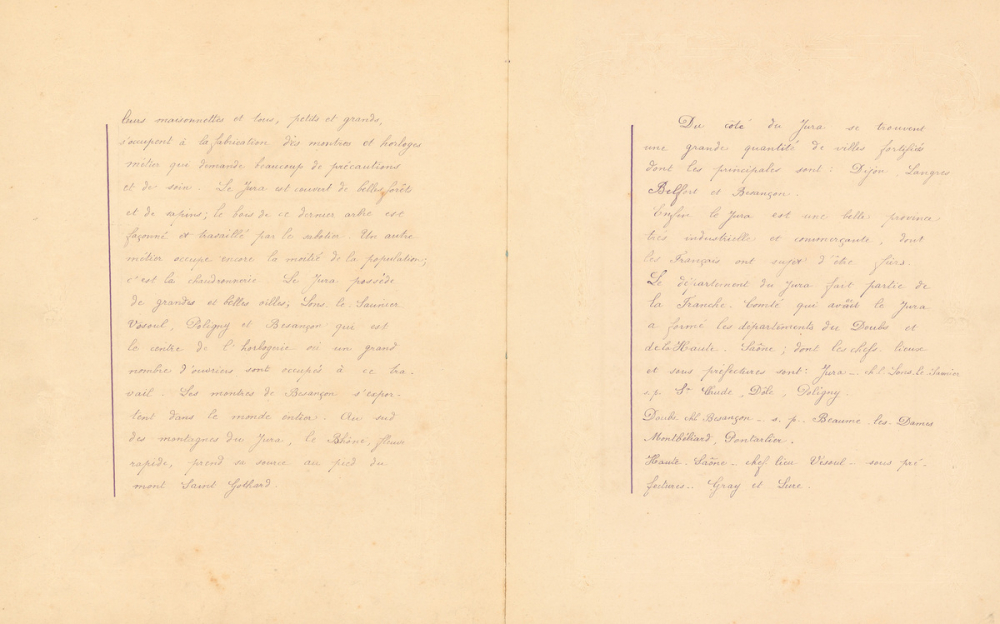 leurs maisonnettes et tous, petits et grands,
s'occupent à la fabrication des montres et horloges
métier qui demande beaucoup de précautions
et de soin. Le Jura est couvert de belles forêts
et de sapins; le bois de ce dernier arbre est
façonné et travaillé par le sabotier. Un autre
métier occupe encore la moitié de la population;
c'est la chaudronnerie. Le Jura possède
de grandes et belles villes; Lons. le Saunier
Vésoul, Poligny et Besançon qui est
le centre de l'horlogerie où un grand
nombre d'ouvriers sont occupés à ce tra-
vail. Les montres de Besançon s'expor-
tent dans le monde entier. Au sud
des montagnes du Jura, le Rhône, fleuve
rapide, prend sa source au pied du
mont Saint Gothard.
Du coté du Jura se trouvent
une grande quantité de villes fortifiés
dont les principales sont: Dijon. Langres,
Belfort et Besançon.
Enfin le Jura est une belle province
très industrielle et commerçante, dont
les Français ont sujet d'être fiers.
Le département du Jura fait partie de
la Franche. Comté qui avait le Jura
a formé les départements du Doubs et
de la Haute. Saône; dont les chefs. lieux
et sous préfectures sont: Jura _ ch.l. Lons. le. Saunier
s.p. St Claude, Dôle, Poligny.
Doubs. chl Besançon _ s. p. Beaume. les. Dames
Montbéliard, Pontarlier.
Haute. Saône _ chef. lieu Vésoul _ sous pré-
fectures.. Gray et Lure.